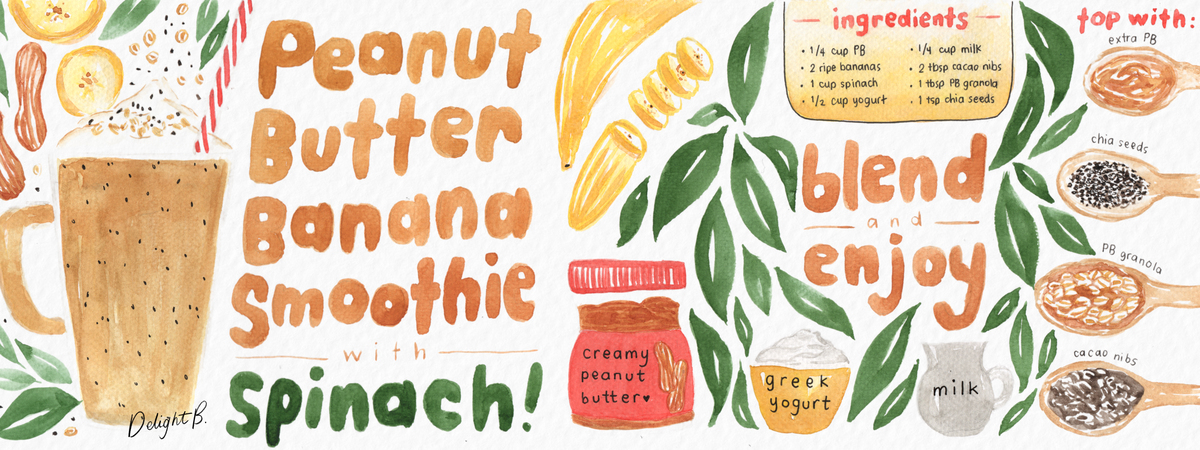 Peanut
Butter
Banana
Smoothie
with
Spinach!
Delight B.
ingredients
• 1/4 cup PB
• 2 ripe bananas
• 1 cup spinach
• 1/2 cup yogurt
• 1/4 cup milk
• 2 tbsp cacao nibs
• 1 tbsp PB granola
• 1 tsp chia seeds
blend
and
enjoy
creamy
peanut
butter♥
greek
yogurt
milk
top with:
extra PB
chia seeds
PB granola
cacao nibs